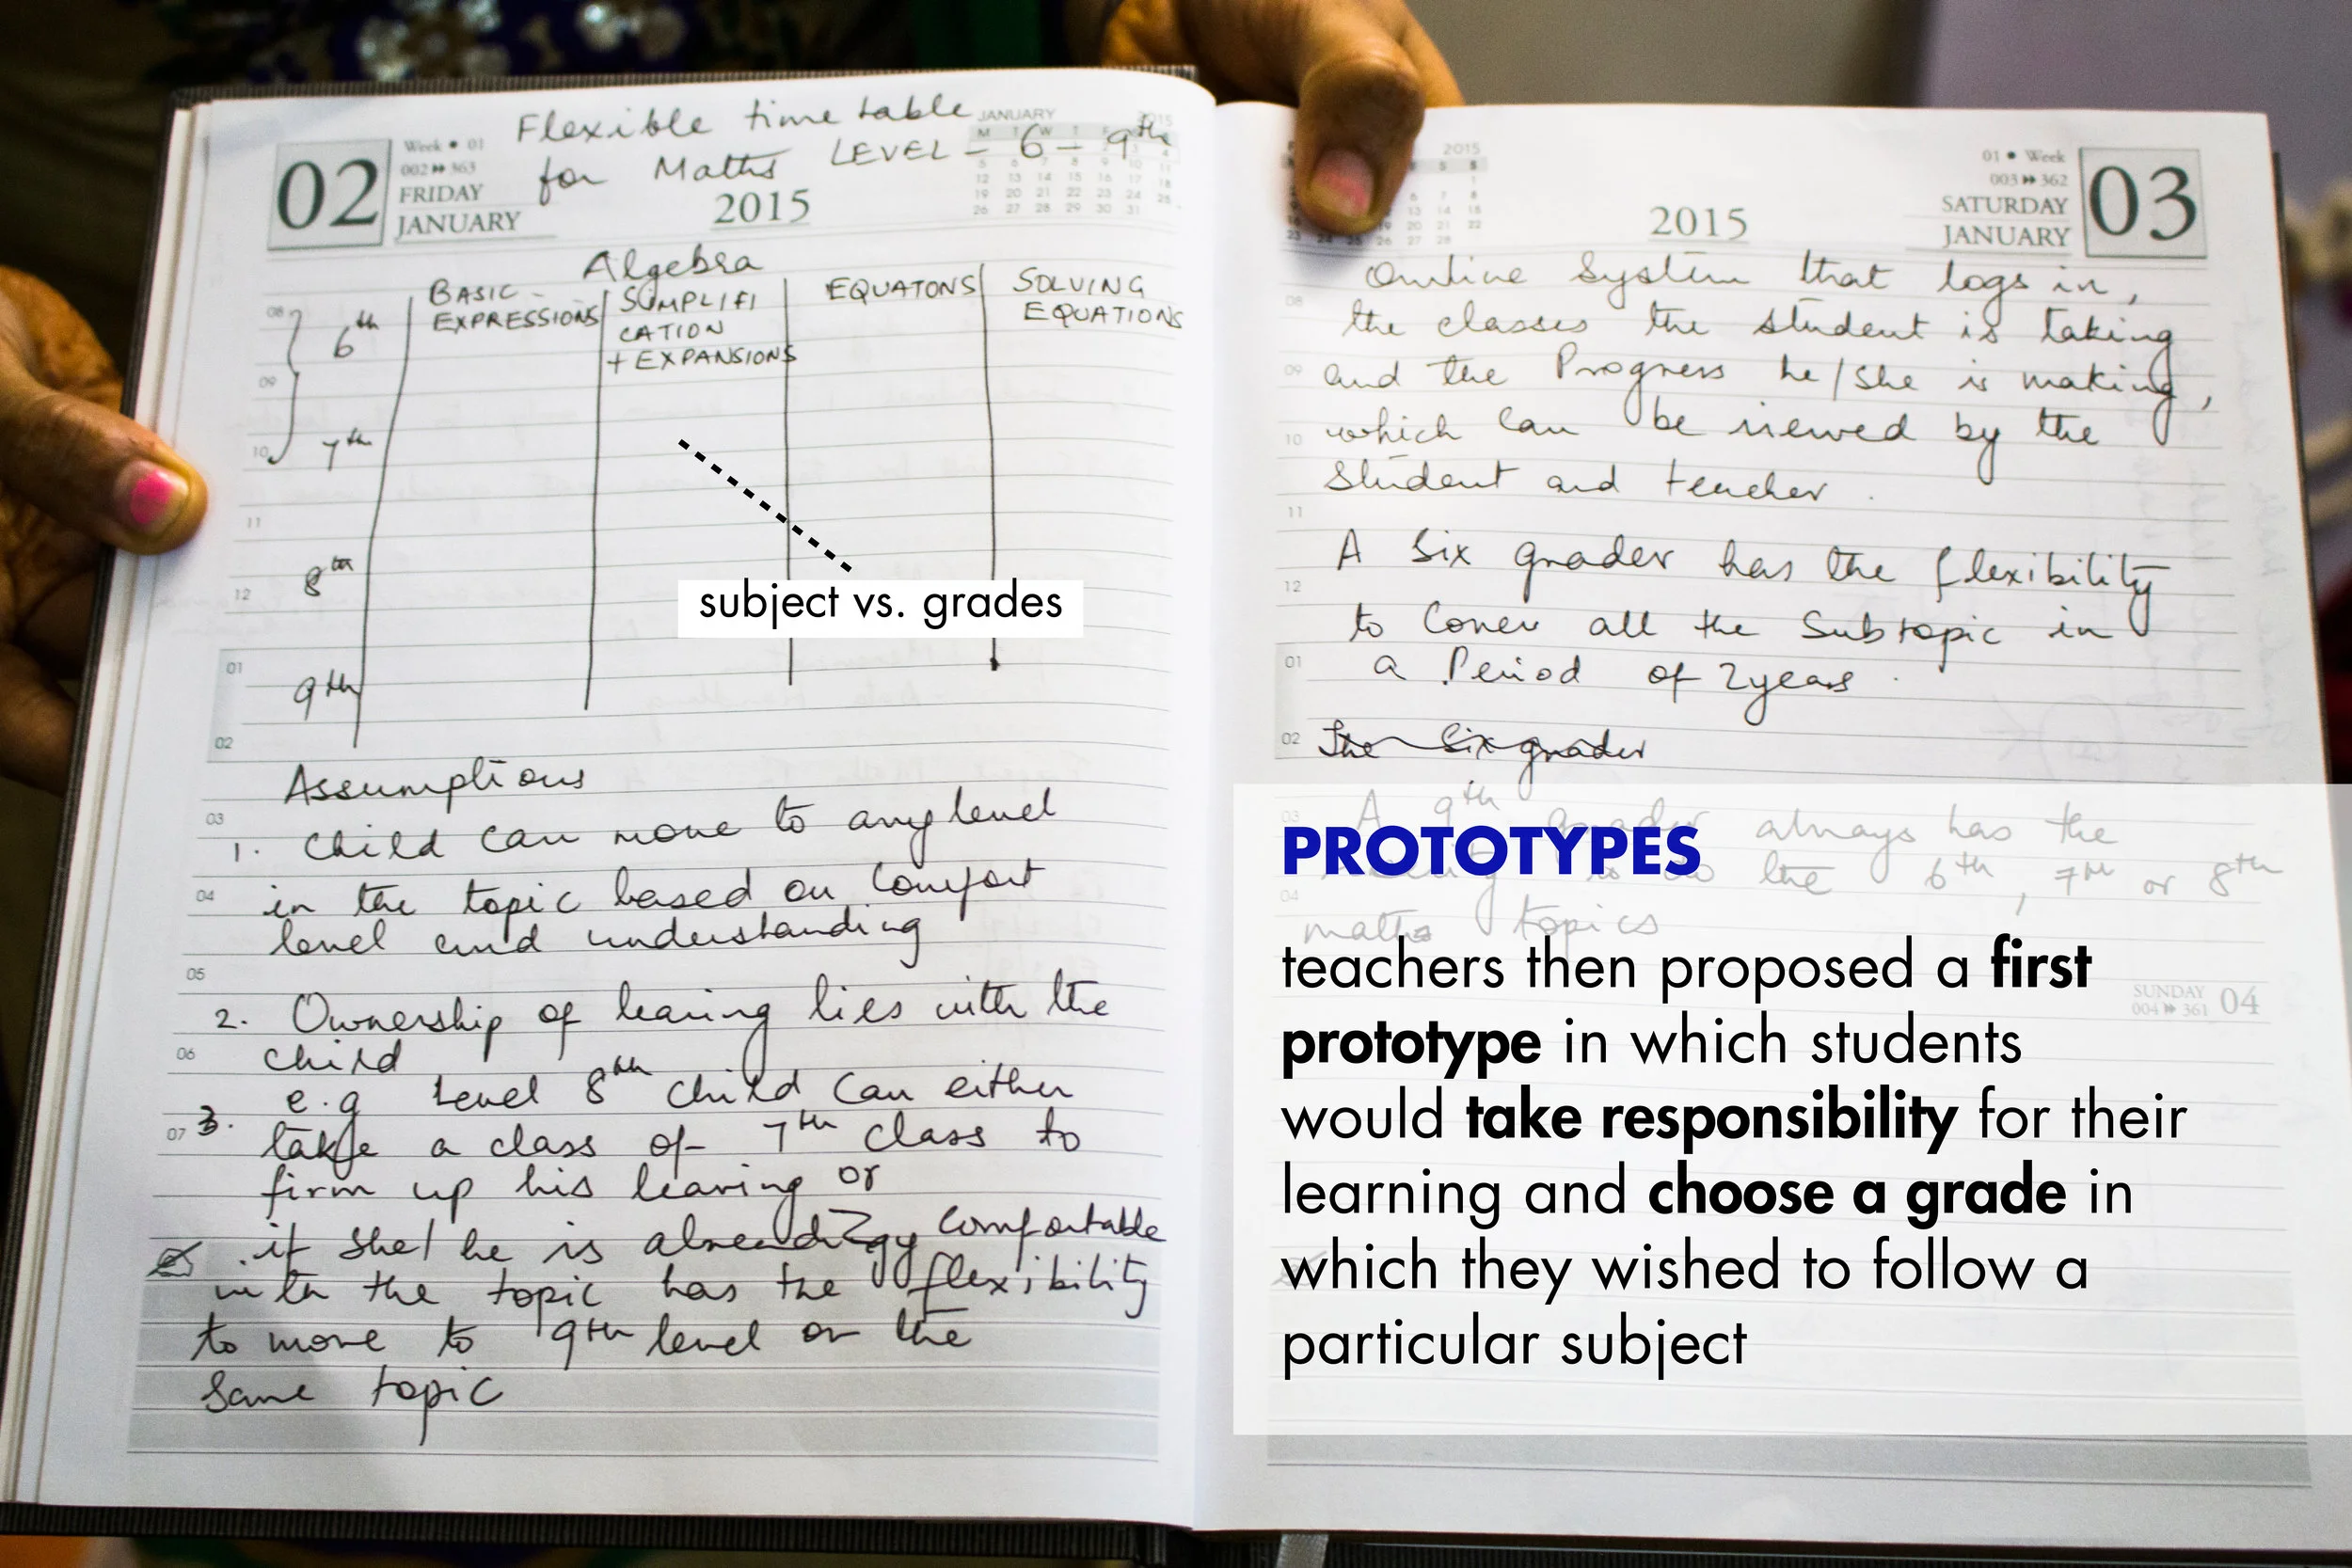 Flexible time table
for Maths LEVEL - 6 - 9th
02
Week • 01
002 ▸▸ 363
FRIDAY
JANUARY
2015
JANUARY 2015
M T W T F
5 6 7 8 9 10
12 13 14 15 16 17 18
19 20 21 22 23 24 25
26 27 28 29 30 31
Algebra
BASIC - EXPRESSIONS
SUMPLIFI
CATION
+ EXPANSIONS
EQUATONS
SOLVING
EQUATIONS
08
6th
09
10
7th
11
12
8th
subject vs. grades
01
9th
02
Assumptions
03
1. Child can move to any level
04
in the topic based on comfort
level and understanding
05
2. Ownership of learing lies with the
06
child
e.g Level 8th child can either
07
3. take a class of 7th class to
firm up his learing or
if she/he is already comfortable
with the topic has the flexibility
to move to 9th level on the
same topic
2015
01 • Week
003 ▸▸ 362
SATURDAY
JANUARY
03
2015
Online System that logs in,
08
the classes the student is taking
09
and the Progress he/she is making,
10
which can be viewed by the
student and teacher.
11
A six grader has the flexibility
12
to cover all the Subtopic in
01
a Period of 2years.
02
The six grader
03
A 9th grader always has the
04
the 6th, 7th or 8th
maths topics
SUNDAY
004 ▸▸ 361
04
PROTOTYPES
teachers then proposed a first
prototype in which students
would take responsibility for their
learning and choose a grade in
which they wished to follow a
particular subject